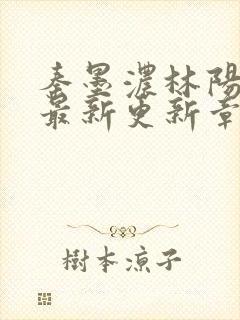 秦墨濃林陽
最新更新章
樹本涼子